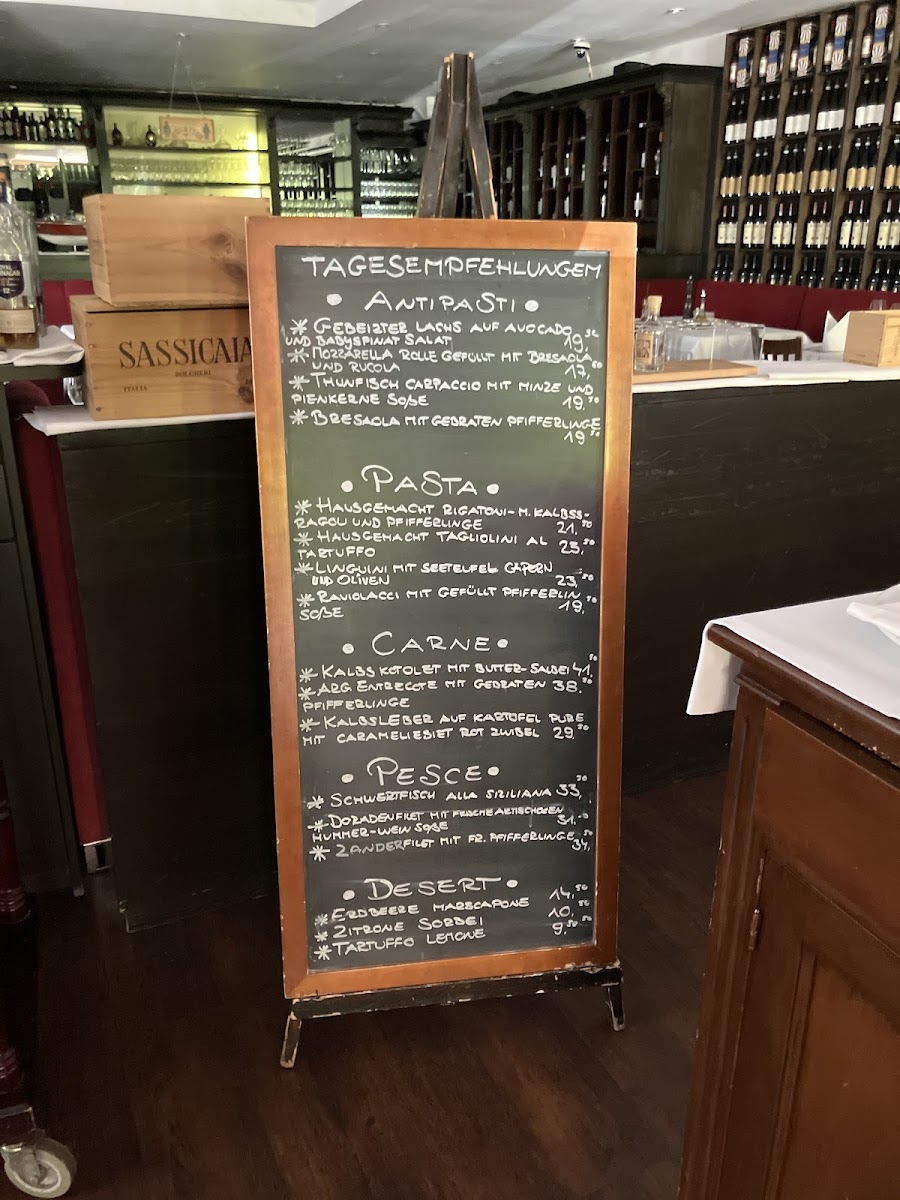 TAGESEMPFEHLUNGEM
• ANTIPASTI •
* GEBEIZTER LACHS AUF AVOCADO
UND BABYSPINAT SALAT 19,50
* MOZZARELLA ROLLE GEFÜLLT MIT BRESAOLA
UND RUCOLA 17,50
* THUNFISCH CARPACCIO MIT MINZE UND
PIENKERNE SOßE 19,50
* BRESAOLA MIT GEBRATEN PFIFFERLINGE
19,50
• PASTA •
* HAUSGEMACHT RIGATONI-M. KALBSS-
RAGOU UND PFIFFERLINGE 21,50
* HAUSGEMACHT TAGLIOLINI AL
TARTUFFO 25,50
* LINGUINI MIT SEETEUFEL CAPORN
UND OLIVEN 23,50
* RAVIOLACCI MIT GEFÜLLT PFIFFERLIN
SOßE 19,50
• CARNE •
* KALBS KOTOLET MIT BUTTER-SALBEI 41,50
* ARG. ENTRECOTE MIT GEBRATEN 38,50
PFIFFERLINGE
* KALBSLEBER AUF KARTOFEL PURE
MIT CARAMELIEBIET ROT ZWIBEL 29,50
• PESCE •
* SCHWERTFISCH ALLA SIZILIANA 33,50
* DORADENFILET MIT FRISCHE ARTISCHOZEN
HUMMER-WEIN SOßE 31,50
* ZANDERFILET MIT FR. PFIFFERLINGE 34,50
• DESERT •
* ERDBEERE MARSCAPONE 14,50
* ZITRONE SORBEI 10,50
* TARTUFFO LEMONE 9,50
SASSICAIA
BOLGHERI
ITALIA